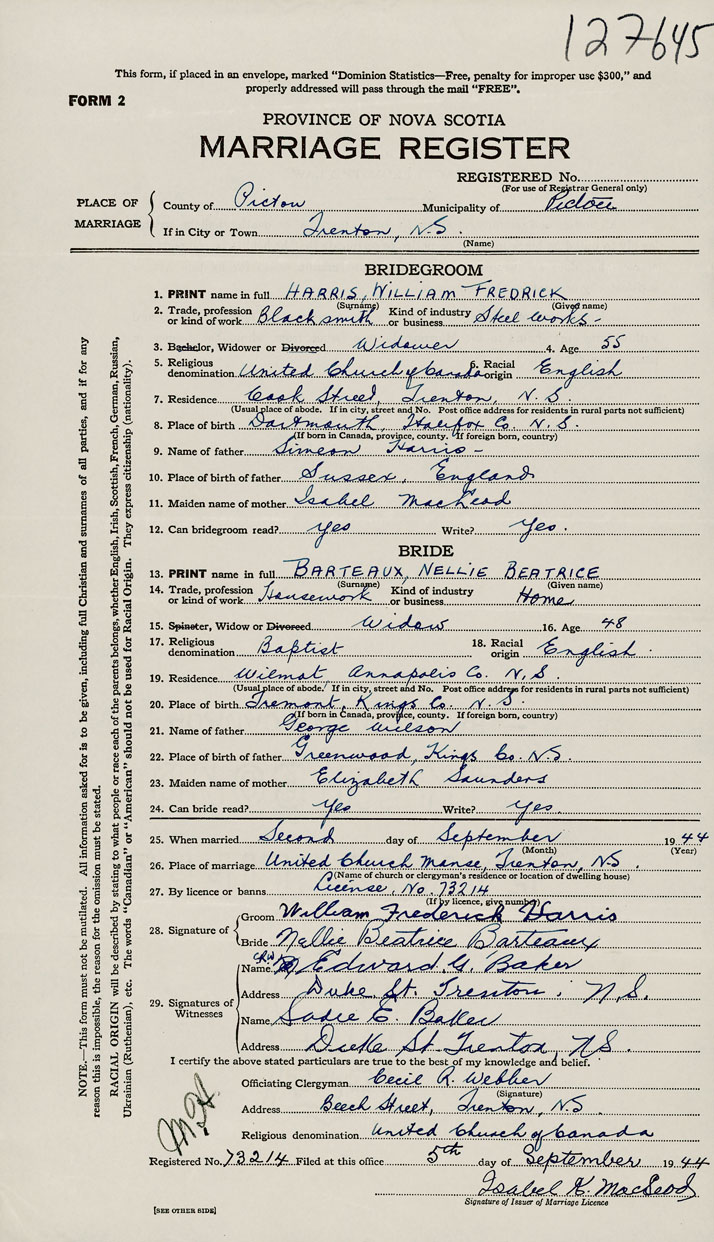 127645
This form, if placed in an envelope, marked "Dominion Statistics—Free, penalty for improper use $300," and
properly addressed will pass through the mail "FREE".
FORM 2
PROVINCE OF NOVA SCOTIA
MARRIAGE REGISTER
REGISTERED No.
(For use of Registrar General only)
PLACE OF MARRIAGE
County of Pictou Municipality of Pictou
If in City or Town Trenton, N.S.
(Name)
BRIDEGROOM
1. PRINT name in full HARRIS, WILLIAM FREDRICK
(Surname) (Given name)
2. Trade, profession or kind of work Blacksmith Kind of industry or business Steel Works-
3. Bachelor, Widower or Divorced Widower 4. Age 55
5. Religious denomination United Church of Canada 6. Racial origin English
7. Residence Cook Street, Trenton, N.S.
(Usual place of abode. If in city, street and No. Post office address for residents in rural parts not sufficient)
8. Place of birth Dartmouth, Halifax Co. N.S.
(If born in Canada, province, county. If foreign born, country)
9. Name of father Simeon Harris-
10. Place of birth of father Sussex, England
11. Maiden name of mother Isabel MacLeod
12. Can bridegroom read? yes Write? yes.
BRIDE
13. PRINT name in full BARTEAUX, NELLIE BEATRICE
(Surname) (Given name)
14. Trade, profession or kind of work Housework Kind of industry or business Home
15. Spinster, Widow or Divorced Widow 16. Age 48
17. Religious denomination Baptist 18. Racial origin English
19. Residence Wilmot Annapolis Co. N.S.
(Usual place of abode. If in city, street and No. Post office address for residents in rural parts not sufficient)
20. Place of birth Tremont, Kings Co. N.S.
(If born in Canada, province, county. If foreign born, country)
21. Name of father George Wilson
22. Place of birth of father Greenwood, Kings Co. N.S.
23. Maiden name of mother Elizabeth Saunders
24. Can bride read? Yes Write? Yes.
25. When married Second day of September 1944
(Month) (Year)
26. Place of marriage United Church Manse, Trenton, N.S.
(Name of church or clergyman's residence or location of dwelling house)
27. By licence or banns License, No. 73214
(If by licence, give number)
28. Signature of
Groom William Frederick Harris
Bride Nellie Beatrice Barteaux
29. Signatures of Witnesses
Name CRW Edward G. Baker
Address Duke St. Trenton, N.S.
Name Sadie E. Baker
Address Duke St Trenton, N.S.
I certify the above stated particulars are true to the best of my knowledge and belief.
Officiating Clergyman Cecil R. Webber
(Signature)
Address Beech Street, Trenton, N.S.
Religious denomination United Church of Canada
Registered No. 73214 Filed at this office 5th day of September 1944
Isabel K. MacLeod
Signature of Issuer of Marriage Licence
[SEE OTHER SIDE]
NOTE.—This form must not be mutilated. All information asked for is to be given, including full Christian and surnames of all parties, and if for any
reason this is impossible, the reason for the omission must be stated.
RACIAL ORIGIN will be described by stating to what people or race each of the parents belongs, whether English, Irish, Scottish, French, German, Russian,
Ukrainian (Ruthenian), etc. The words "Canadian" or "American" should not be used for Racial Origin. They express citizenship (nationality).